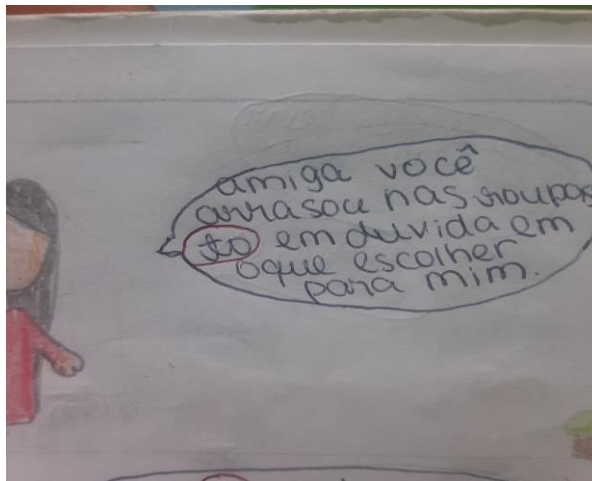 amiga você
arrasou nas roupas
to em duvida em
oque escolher
para mim.